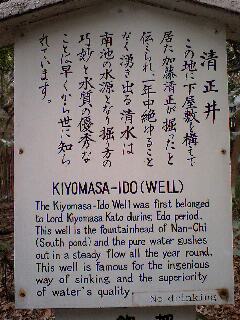 清正井
この地に下屋敷を構えて
居た加藤清正が掘ったと
伝えられ一年中絶ゆること
なく湧き出る清水は
南池の水源となり掘り方の
巧妙と水質の優秀な
ことは早くから世に知ら
れています。
KIYOMASA-IDO (WELL)
The Kiyomasa-Ido Well was first belonged
to Lord Kiyomasa Kato during Edo period.
This well is the fountainhead of Nan-Chi
(South pond) and the pure water gushes
out in a steady flow all the year round.
This well is famous for the ingenious
way of sinking and the superiority
of water's quality.
No drinking